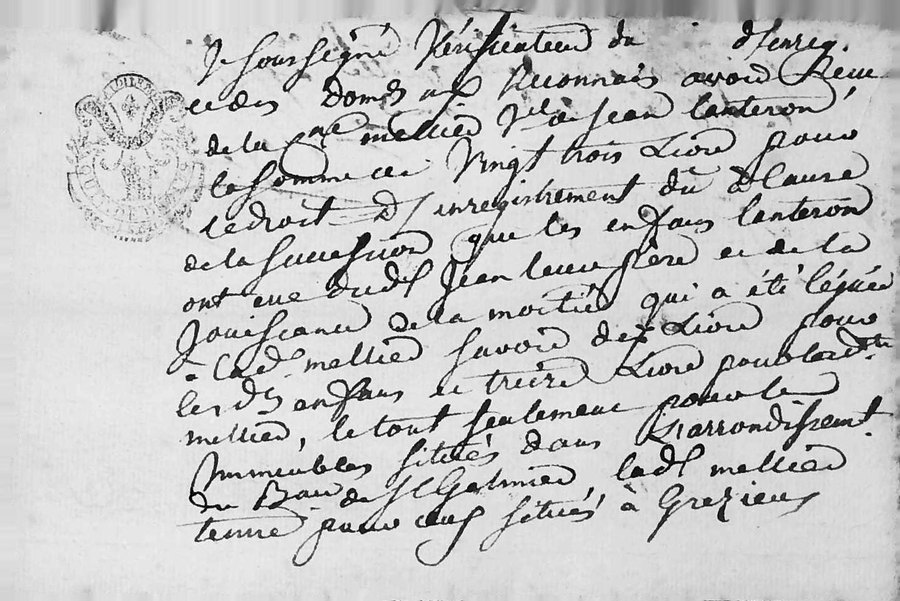 Je soussigné Vérificateur du d'Enreg.
et des doms reconnais avoir Reçu
de la mellier Vve de Jean lanteron
la Somme de Vingt trois Livre pour
le droit d'Enregistrement du
de la Succession que les enfans lanteron
ont eue dudt Jean leur père et de la
Jouissance de la moitié qui a été léguée
à ladt mellier savoir dix Livre pour
les dts enfans et treize Livre pour ladte
mellier, le tout seulement pour les
Immeubles situés dans l'arrondissemt
du Bau de St Galmier, ladt mellier
tenue pour ceux situés à Grezieux